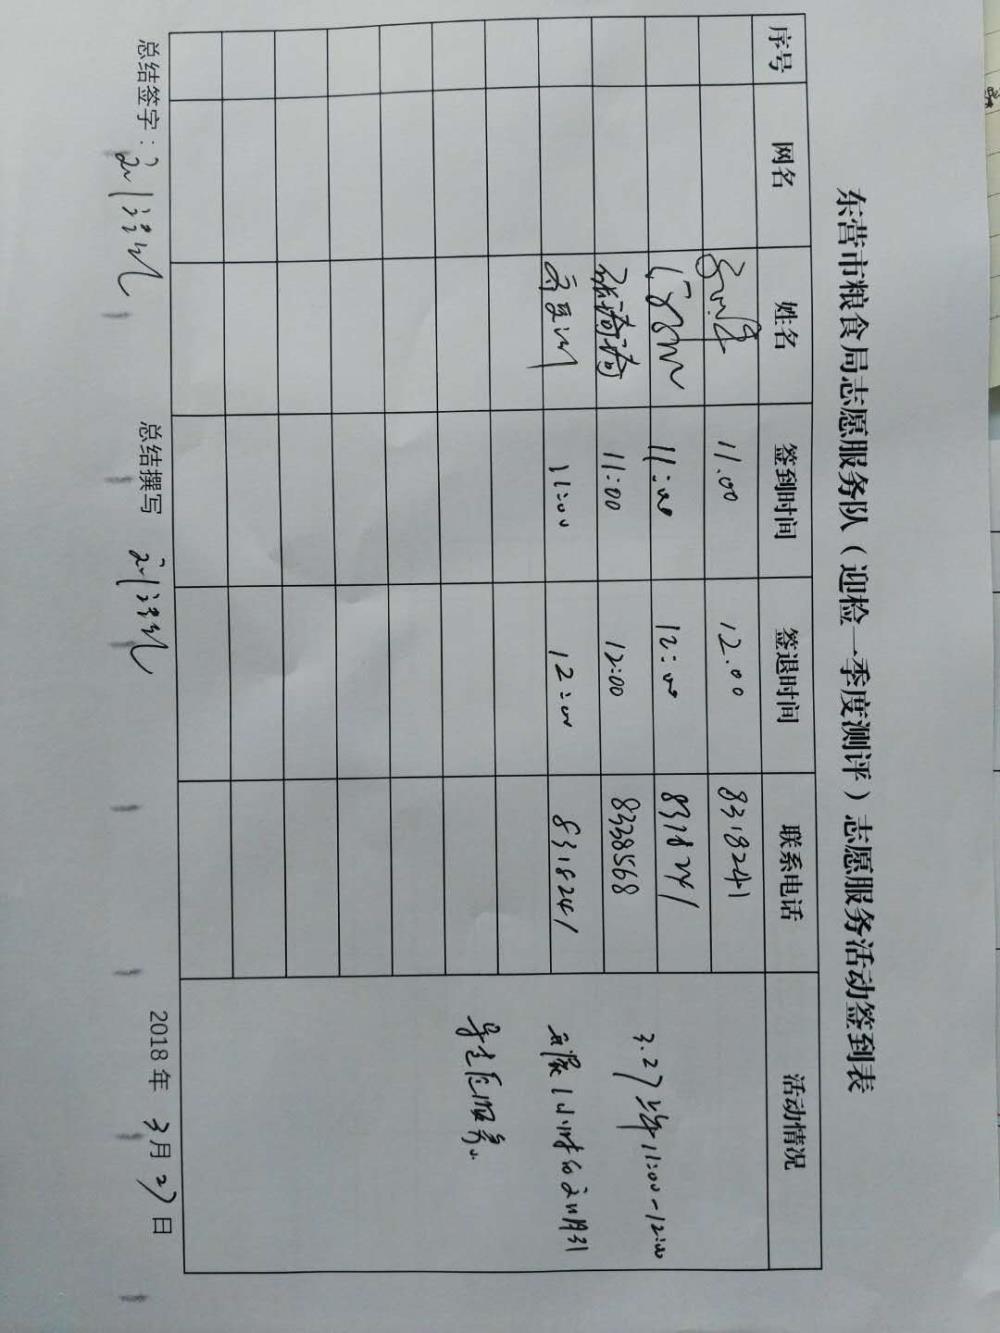 东营市粮食局志愿服务队（迎检一季度测评）志愿服务活动签到表
序号 网名 姓名 签到时间 签退时间 联系电话 活动情况
11.00 12.00 8318241
11:00 12:00 8318241
张 11:00 12:00 8338568
11:00 12:00 8318241
3.27上午11:00-12:00
1小时的文明引
导志愿服务
总结签字： 总结撰写 2018年3月27日